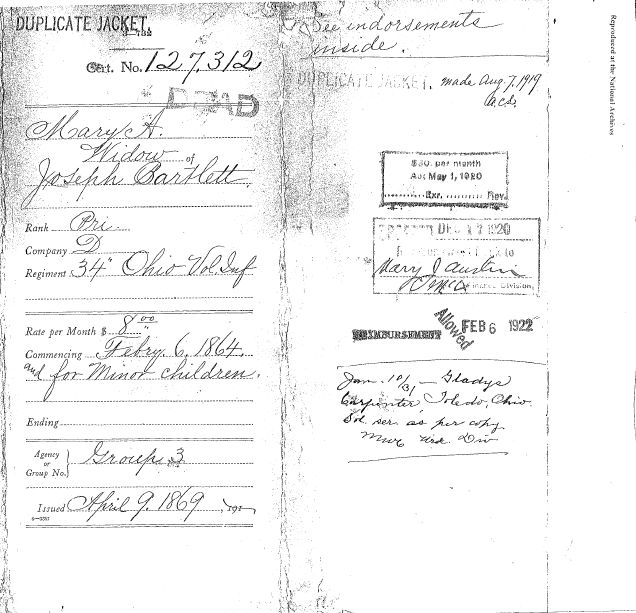 DUPLICATE JACKET.
3—733
Cert. No. 127,312
DEAD
Mary A.
Widow of
Joseph Bartlett
Rank Pri.
Company D
Regiment 34" Ohio Vol Inf
Rate per Month $ 8 00
Commencing Febry. 6, 1864.
and for Minor children.
Ending
Agency
or
Group No.} Group 3
Issued April 9. 1869, 191
See indorsements
inside.
DUPLICATE JACKET. made Aug. 7, 1919
$30. per month
Act May 1, 1920
Exr. Rev.
DEC 17 1920
to
Mary J Austin
Division
REIMBURSEMENT Allowed FEB 6 1922
Jan. 10/31 — Gladys
Carpenter Toledo, Ohio.
Sol. ser. as per copy
Div
Reproduced at the National Archives